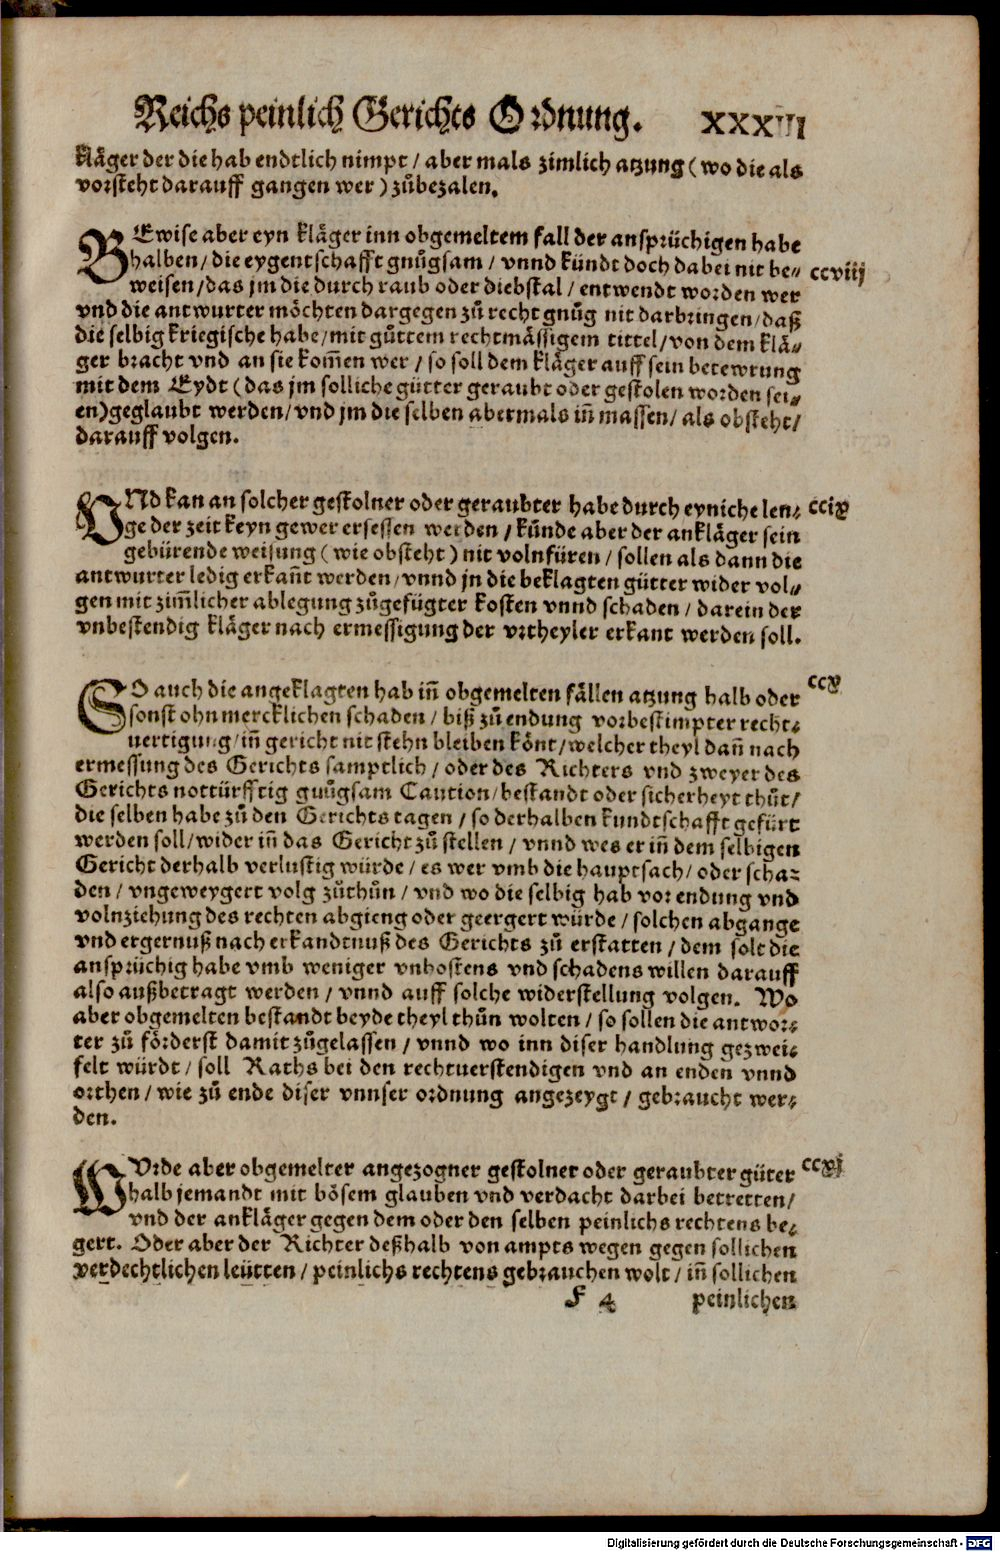 Reichs peinlich Gerichts Ordnung. XXXVII
kläger der die hab endtlich nimpt / aber mals zimlich atzung (wo die als
vorsteht darauff gangen wer) zůbezalen.
BEwise aber eyn kläger inn obgemeltem fall der ansprüchigen habe
halben / die eygentschafft gnůgsam / vnnd kündt doch dabei nit be⸗ ccviij
weisen / das jm die durch raub oder diebstal / entwendt worden wer
vnd die antwurter möchten dargegen zů recht gnůg nit darbringen / daß
die selbig kriegische habe / mit gůttem rechtmässigem tittel / von dem klä⸗
ger bracht vnd an sie kom̃en wer / so soll dem kläger auff sein betewrung
mit dem Eydt (das jm solliche gütter geraubt oder gestolen worden sei⸗
en) geglaubt werden / vnd jm die selben abermals in̄ massen / als obsteht /
darauff volgen.
VNd kan an solcher gestolner oder geraubter habe durch eyniche len⸗ ccix
ge der zeit keyn gewer ersessen werden / künde aber der ankläger sein
gebürende weisung (wie obsteht) nit volnfüren / sollen als dann die
antwurter ledig erkañt werden / vnnd jn die beklagten gütter wider vol⸗
gen mit zim̃licher ablegung zůgefügter kosten vnnd schaden / darein der
vnbestendig kläger nach ermessigung der vrtheyler erkant werden soll.
SO auch die angeklagten hab in̄ obgemelten fällen atzung halb oder ccx
sonst ohn mercklichen schaden / biß zů endung vorbestimpter recht⸗
uertigung / in̄ gericht nit stehn bleiben könt / welcher theyl dañ nach
ermessung des Gerichts samptlich / oder des Richters vnd zweyer des
Gerichts nottürfftig gnůgsam Caution / bestandt oder sicherheyt thůt /
die selben habe zů den Gerichts tagen / so derhalben kundtschafft gefürt
werden soll / wider in̄ das Gericht zů stellen / vnnd wes er in̄ dem selbigen
Gericht derhalb verlustig würde / es wer vmb die hauptsach / oder scha⸗
den / vngeweygert volg zůthůn / vnd wo die selbig hab vor endung vnd
volnziehung des rechten abgieng oder geergert würde / solchen abgange
vnd ergernuß nach erkandtnuß des Gerichts zů erstatten / dem solt die
ansprüchig habe vmb weniger vnkostens vnd schadens willen darauff
also außbetragt werden / vnnd auff solche widerstellung volgen. Wo
aber obgemelten bestandt beyde theyl thůn wolten / so sollen die antwor⸗
ter zů förderst damit zůgelassen / vnnd wo inn diser handlung gezwei⸗
felt würdt / soll Raths bei den rechtuerstendigen vnd an enden vnnd
orthen / wie zů ende diser vnnser ordnung angezeygt / gebraucht wer⸗
den.
WVrde aber obgemelter angezogner gestolner oder geraubter güter ccxj
halb jemandt mit bösem glauben vnd verdacht darbei betretten /
vnd der ankläger gegen dem oder den selben peinlichs rechtens be⸗
gert. Oder aber der Richter deßhalb von ampts wegen gegen sollichen
verdechtlichen leütten / peinlichs rechtens gebrauchen wolt / in̄ sollichen
F 4 peinlichen
Digitalisierung gefördert durch die Deutsche Forschungsgemeinschaft - DFG